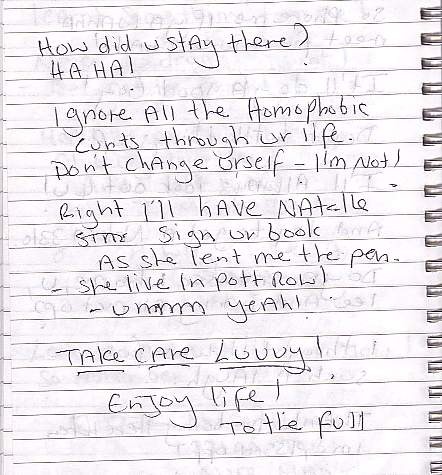 How did u stay there?
HA HA!
Ignore All the Homophobic
Cunts through ur life.
Don't change urself - I'm Not!
Right I'll have Natalie
Sign ur book
As she lent me the pen.
- she live in Pott Row!
- ummm yeah!
TAKE CARE Luvvy!
Enjoy life!
To the full